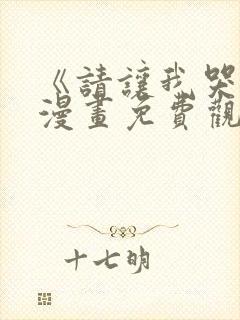 《請讓我哭
漫畫免費觀
十七明